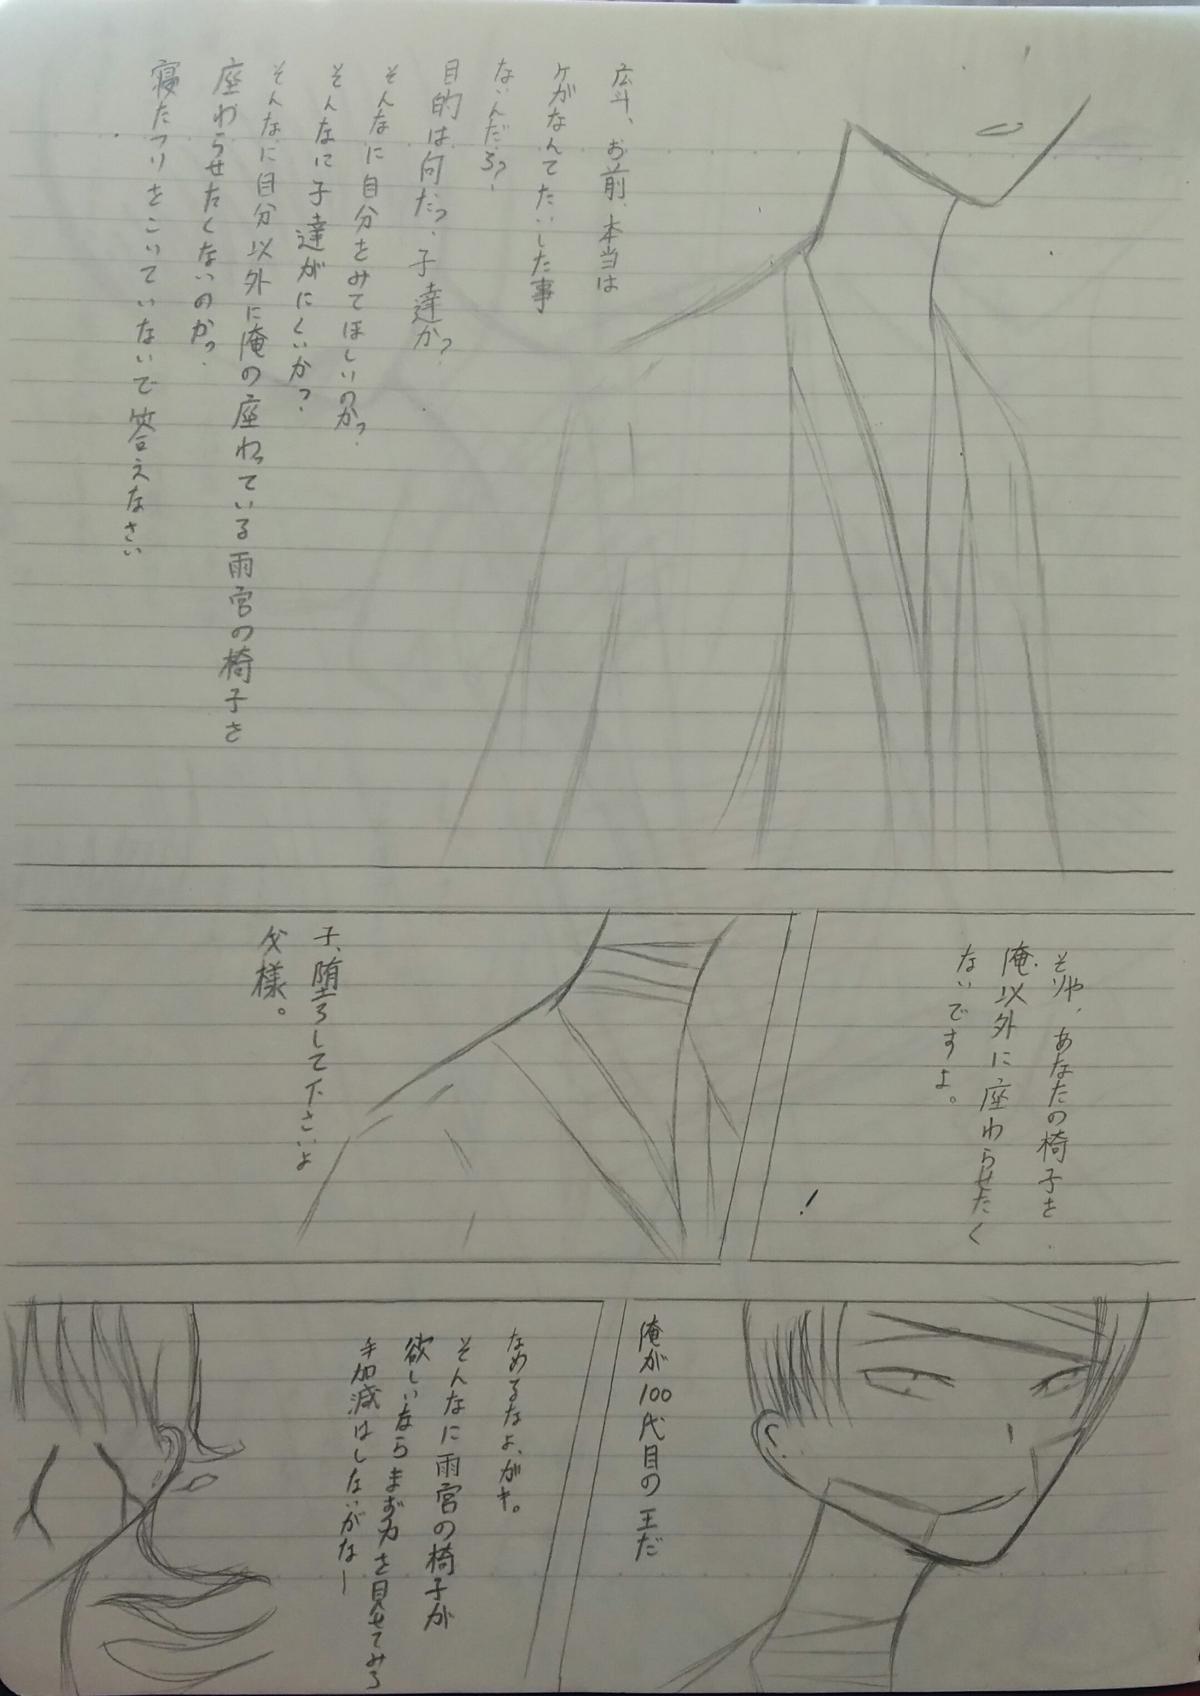 広斗、お前、本当は
ケがなんてたいした事
ないんだろ?
目的は何だっ、子達か?
そんなに自分をみてほしいのかっ?
そんなに子達がにくいか?
そんなに自分以外に俺の座わっている雨宮の椅子を
座わらせたくないのかっ?
寝たフリをこいていないで答えなさい
そりゃ、あなたの椅子を
俺以外に座わらせたく
ないですよ。
子、堕ろして下さいよ
父様。
俺が100代目の王だ
なめるなよ、がキ。
そんなに雨宮の椅子が
欲しいならまず力を見せてみろ
手加減はしないがなー